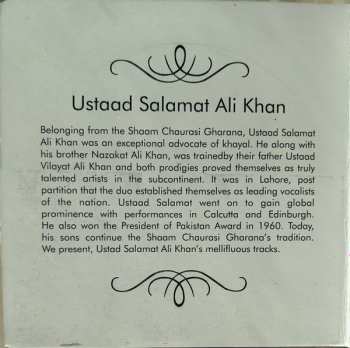 Ustaad Salamat Ali Khan
Belonging from the Shaam Chaurasi Gharana, Ustaad Salamat
Ali Khan was an exceptional advocate of khayal. He along with
his brother Nazakat Ali Khan, was trainedby their father Ustaad
Vilayat Ali Khan and both prodigies proved themselves as truly
talented artists in the subcontinent. It was in Lahore, post
partition that the duo established themselves as leading vocalists
of the nation. Ustaad Salamat went on to gain global
prominence with performances in Calcutta and Edinburgh.
He also won the President of Pakistan Award in 1960. Today,
his sons continue the Shaam Chaurasi Gharana's tradition.
We present, Ustad Salamat Ali Khan's mellifluous tracks.